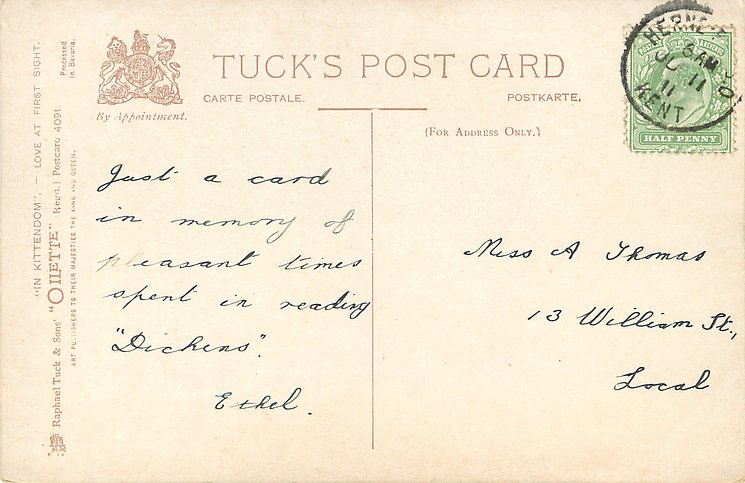 TUCK'S POST CARD
CARTE POSTALE.
POSTKARTE.
By Appointment.
(For Address Only.)
"IN KITTENDOM". — LOVE AT FIRST SIGHT.
Raphael Tuck & Sons' "OILETTE" Regd.) Postcard 4091
ART PUBLISHERS TO THEIR MAJESTIES THE KING AND QUEEN.
Processed
in Bavaria.
Just a card
in memory of
pleasant times
spent in reading
"Dickens".
Ethel.
Miss A Thomas
13 William St.,
Local
HALF PENNY
6 AM
JU 11
11
KENT